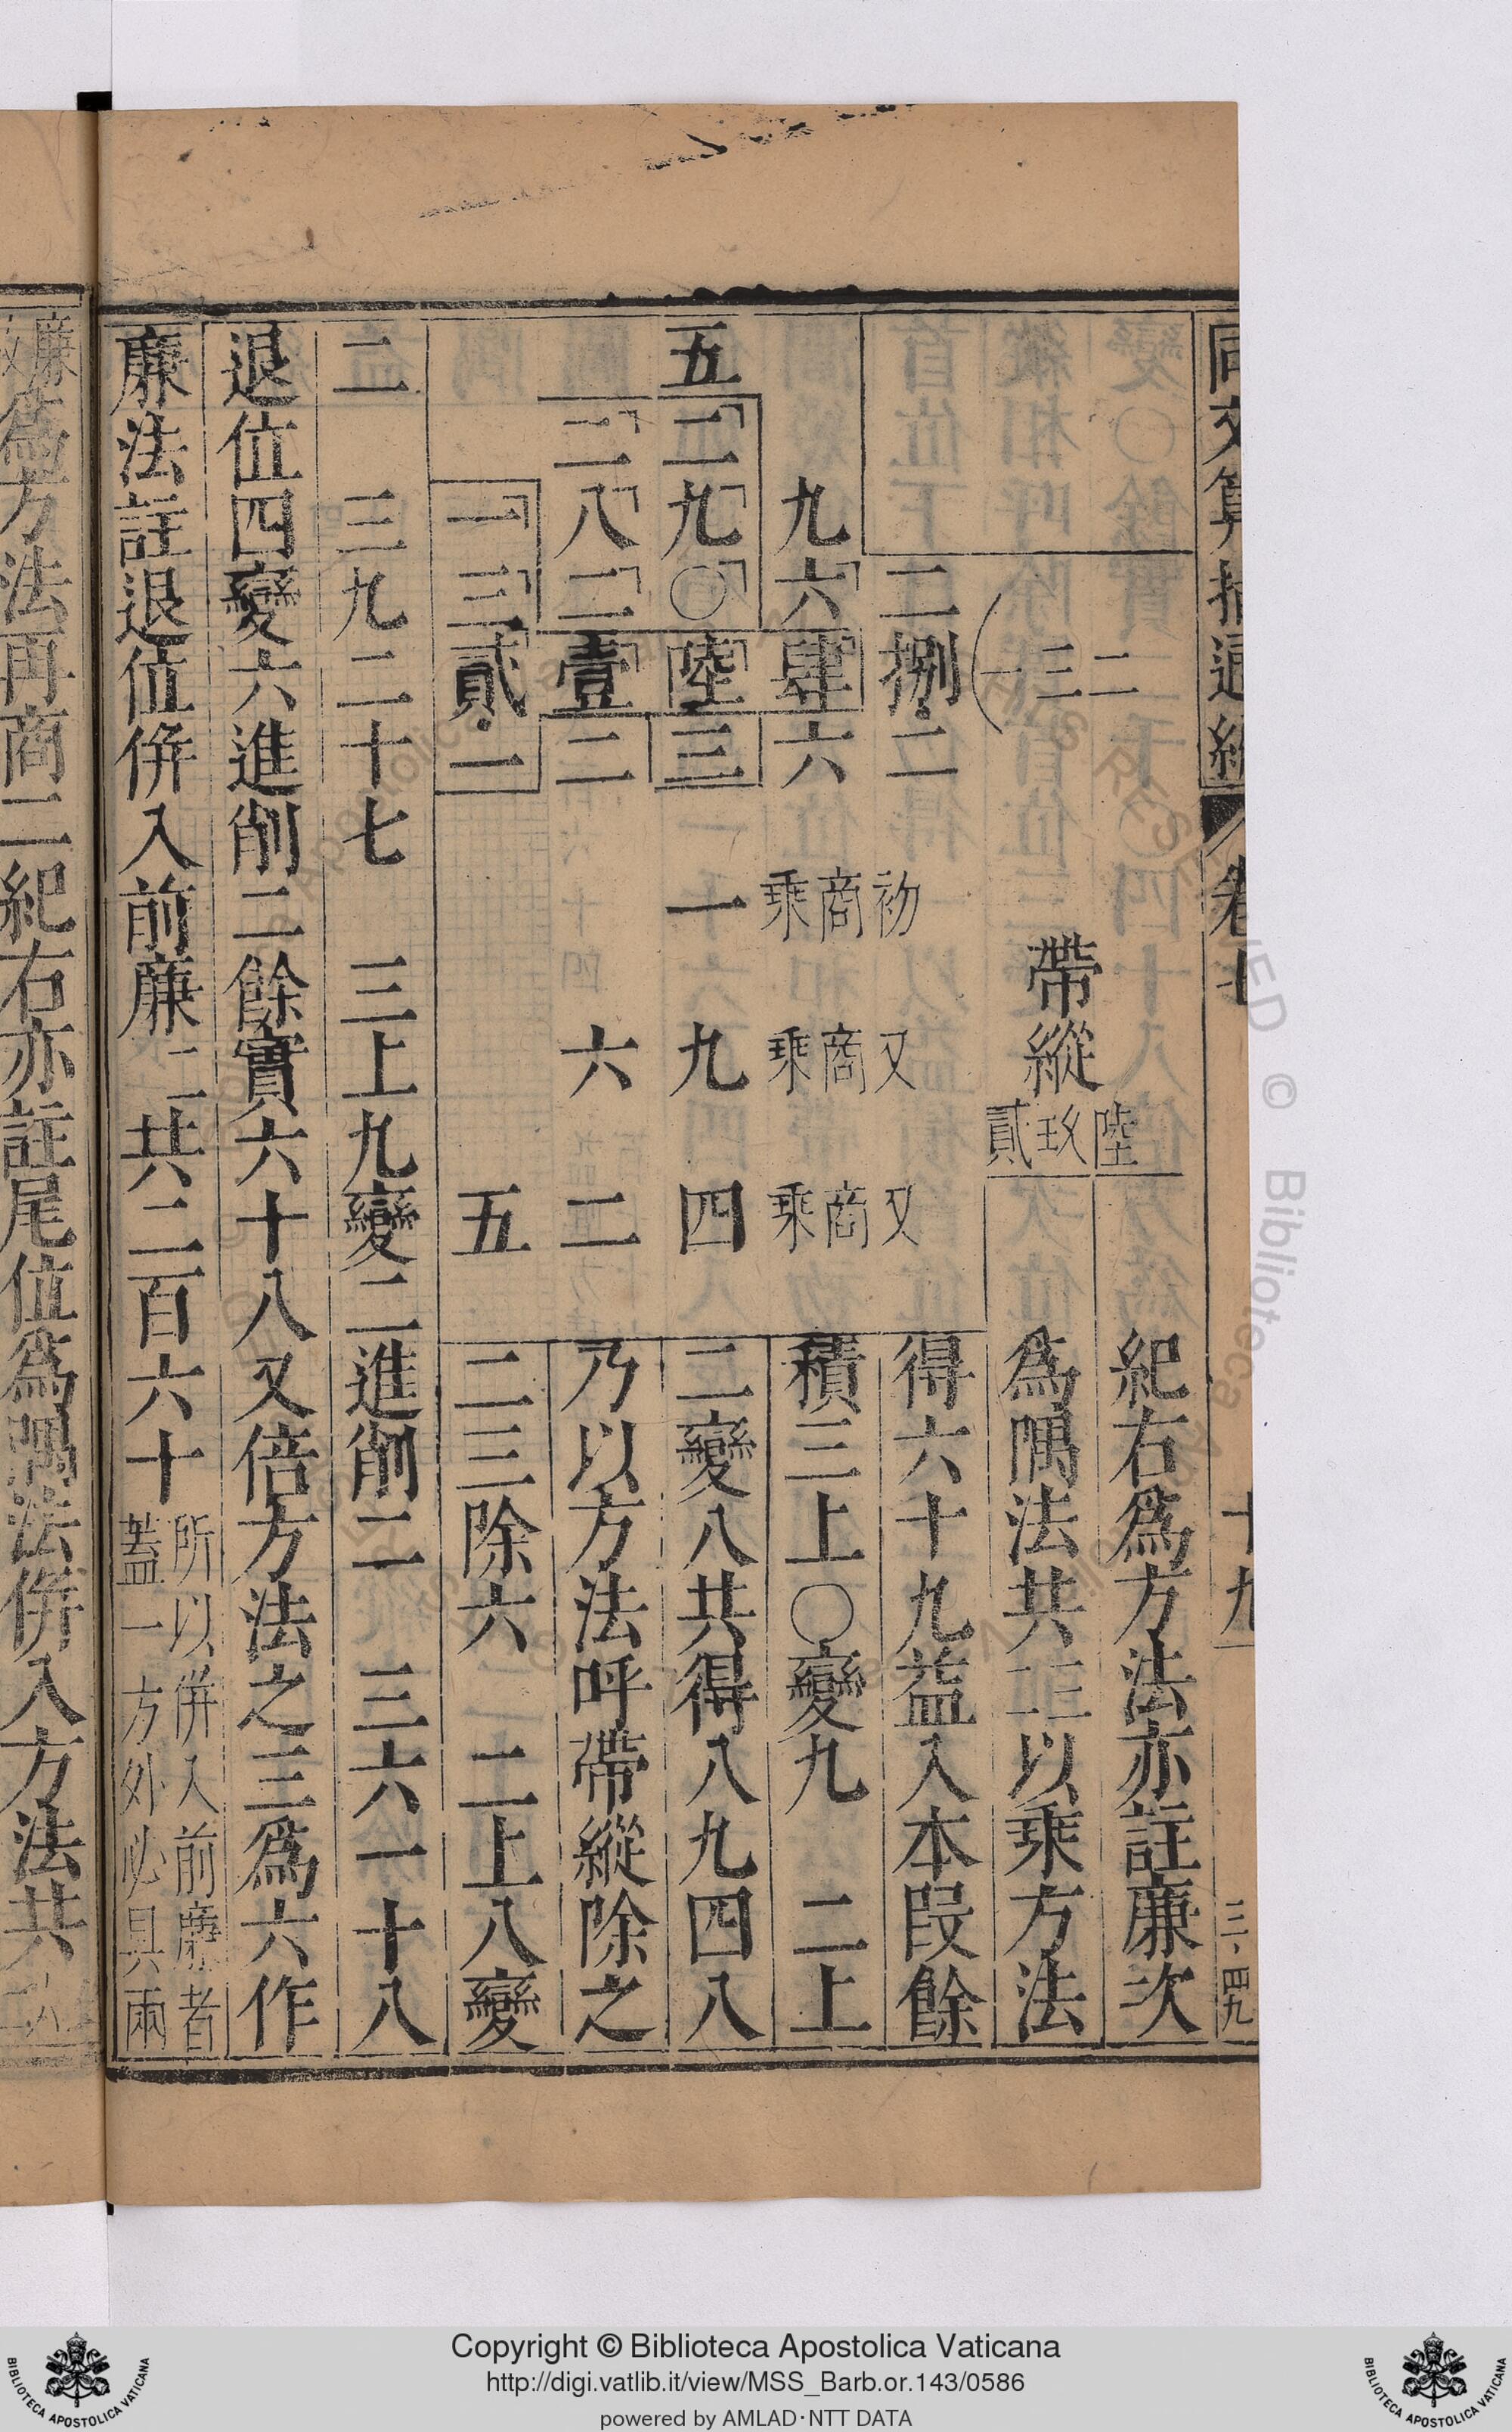 同文算指通編 卷七 十九 三·四九
二三一
帶縱 陸玖貳
紀右爲方法亦註廉次
爲隅法共二三以乘方法
得六十九益入本段餘
積三上〇變九 二上
二變八共得八九四八
乃以方法呼帶縱除之
二三除六 二上八變
二捌·二
九六肆六
五二九〇陸三
二八二壹二
一三貳·一
初商乘 一
又商乘 九六
又商乘 四二五
二 三九二十七 三上九變二進削二 三六一十八
退位四變六進削二餘實六十八又倍方法之三爲六作
廉法註退位併入前廉二共二百六十所以併入前廉者
蓋一方外必具兩
廉
爲方法再商二紀右亦註尾位爲隅法併入方法共
Copyright © Biblioteca Apostolica Vaticana
http://digi.vatlib.it/view/MSS_Barb.or.143/0586
powered by AMLAD·NTT DATA
BIBLIOTECA APOSTOLICA VATICANA
BIBLIOTECA APOSTOLICA VATICANA